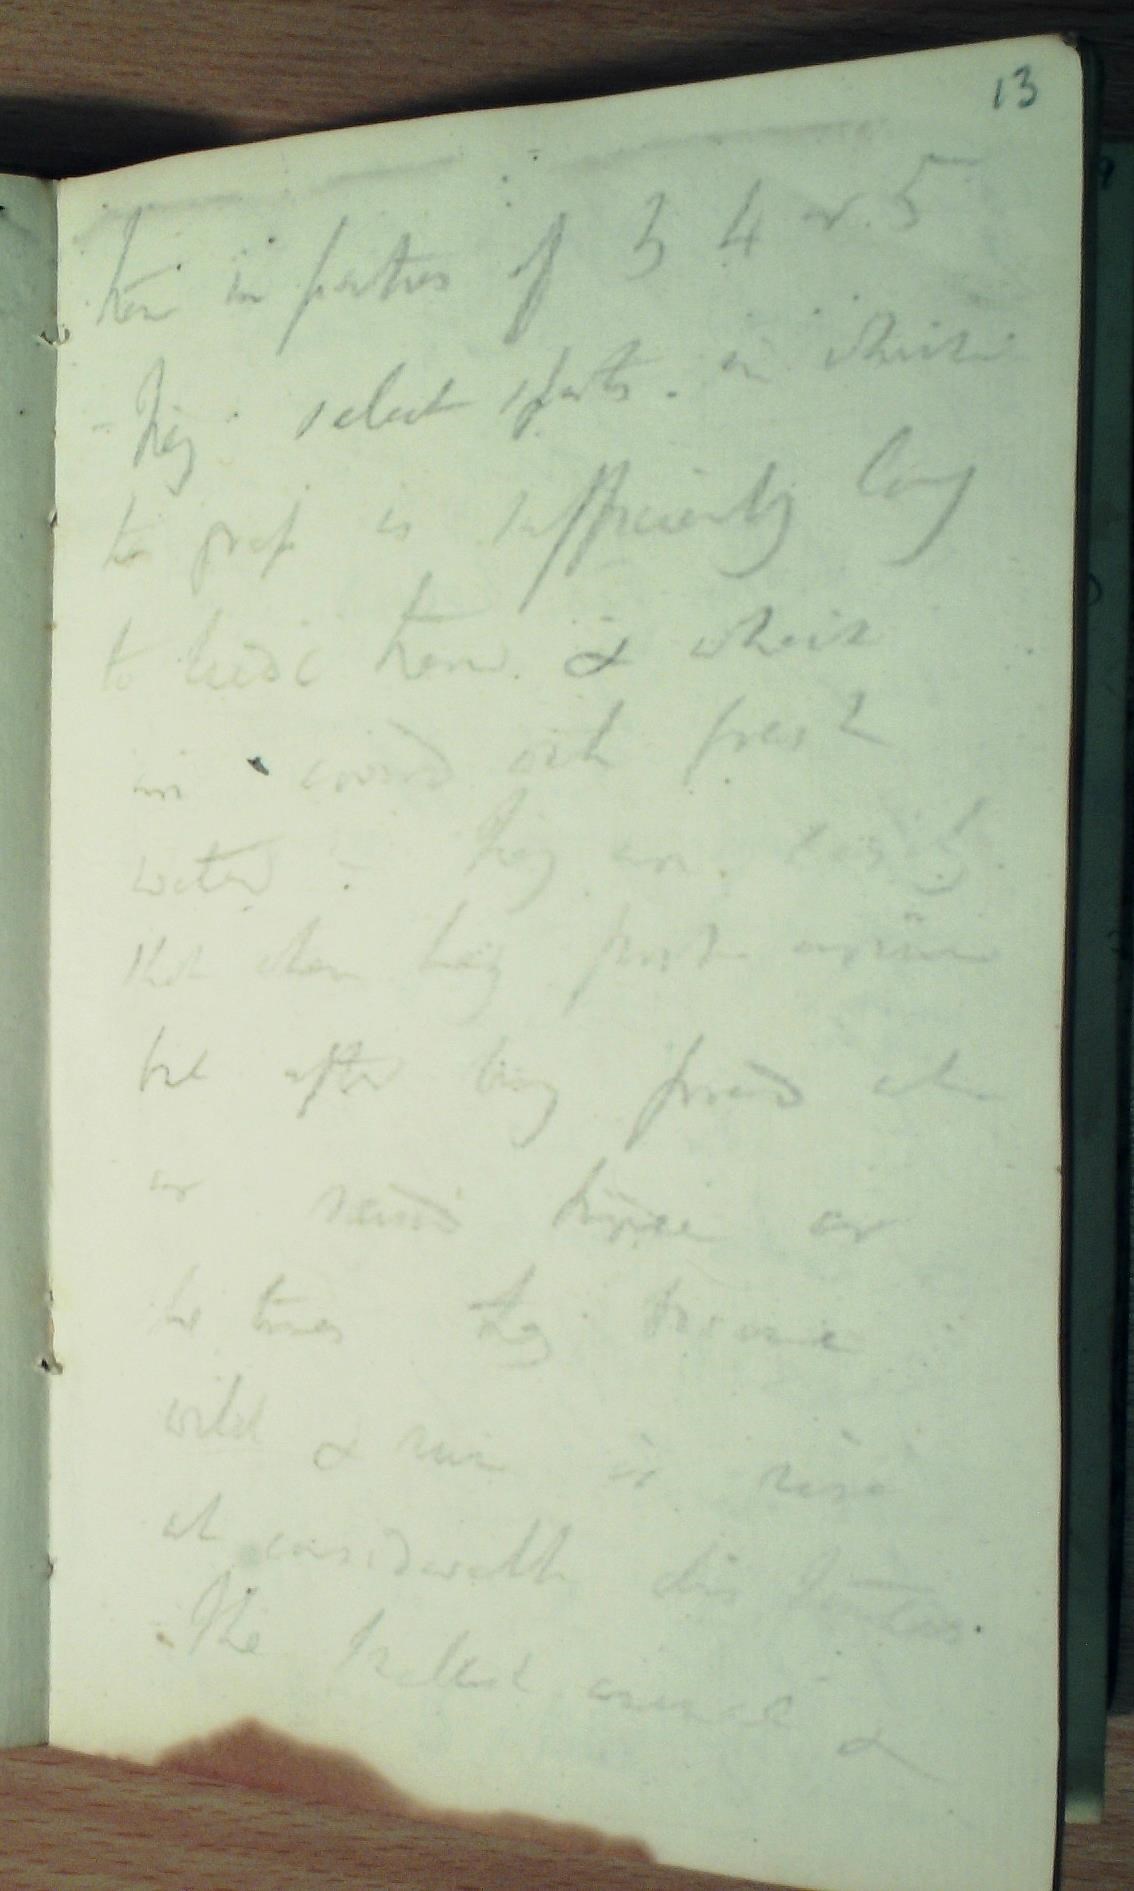 13
them in parties of 3 4 or 5
- They select spots in which
the grass is sufficiently long
to hide them & which
are covered with fresh
water - They are easily
shot when they first arrive
but after being found
or raised twice or
the times they become
wild & run or rise
at considerable distances.
- The male &